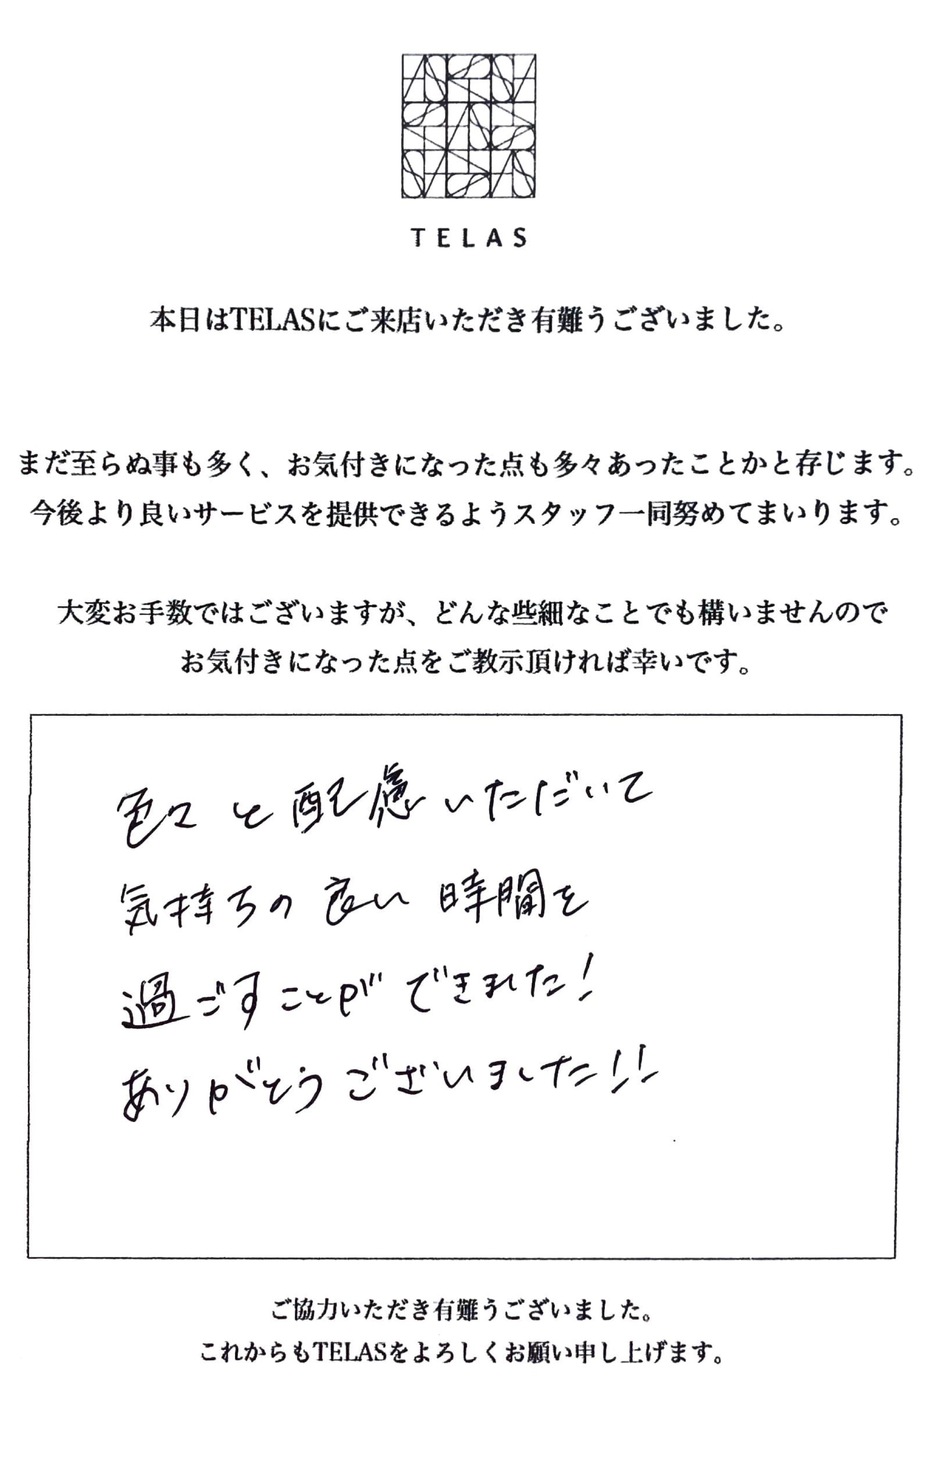 TELAS
本日はTELASにご来店いただき有難うございました。
まだ至らぬ事も多く、お気付きになった点も多々あったことかと存じます。
今後より良いサービスを提供できるようスタッフ一同努めてまいります。
大変お手数ではございますが、どんな些細なことでも構いませんので
お気付きになった点をご教示頂ければ幸いです。
色々と配慮いただいて
気持ちの良い時間を
過ごすことができました!
ありがとうございました!!
ご協力いただき有難うございました。
これからもTELASをよろしくお願い申し上げます。